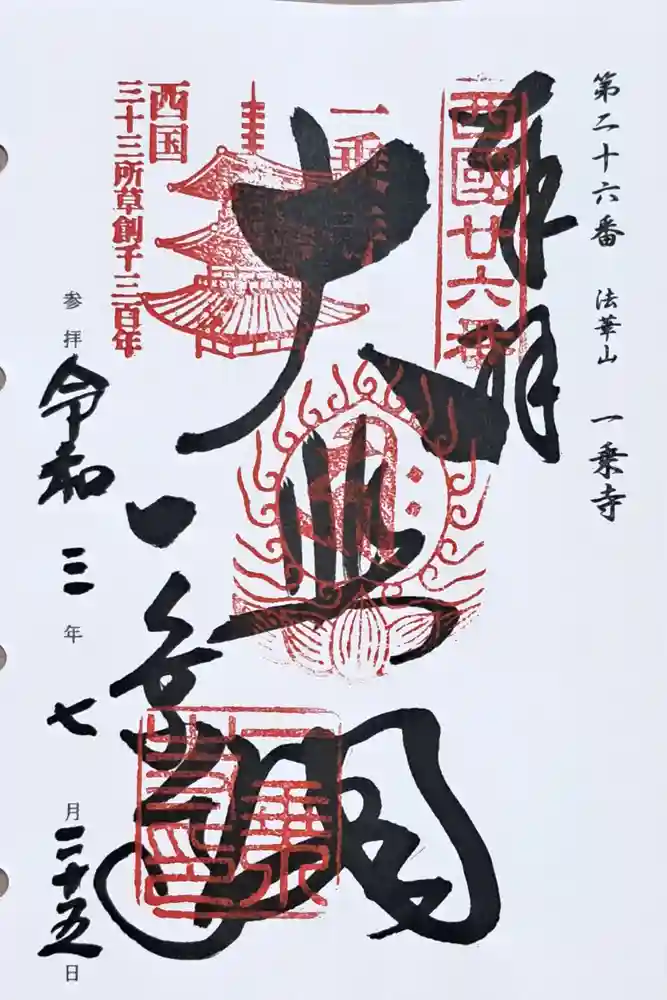 第二十六番 法華山 一乗寺
奉拝
西國廿六番
大悲閣
一乗寺
西国
三十三所草創千三百年
一乗寺
参拝 令和 三 年 七 月 二十五 日